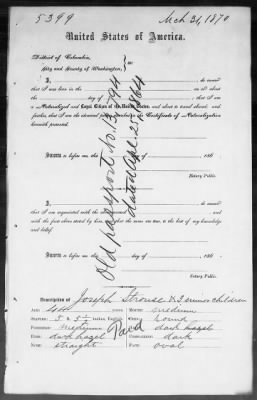 5399
Mch 31, 1870
United States of America.
District of Columbia,
City and County of Washington, } ss:
I, do swear
that I was born in the on or about
the day of , that I am
a Naturalized and Loyal Citizen of the United States, and about to travel abroad; and
further, that I am the identical person described in the Certificate of Naturalization
herewith presented.
Sworn to before me, this day of 186
Notary Public.
Old passport No. 13,794
dated Apl. 21, 1864
I, do swear
that I am acquainted with the above-named and with
the facts above stated by him, and that the same are true, to the best of my knowledge
and belief.
Sworn to before me, this day of 186
Notary Public.
Description of Joseph Strouse & 3 minor children
Age: 44 years. Mouth: medium
Stature: 5 ft. 5 ½ inches, English. Chin: round
Forehead: medium Hair: dark hazel
Eyes: dark hazel Complexion: dark
Nose: straight Face: oval
Paid